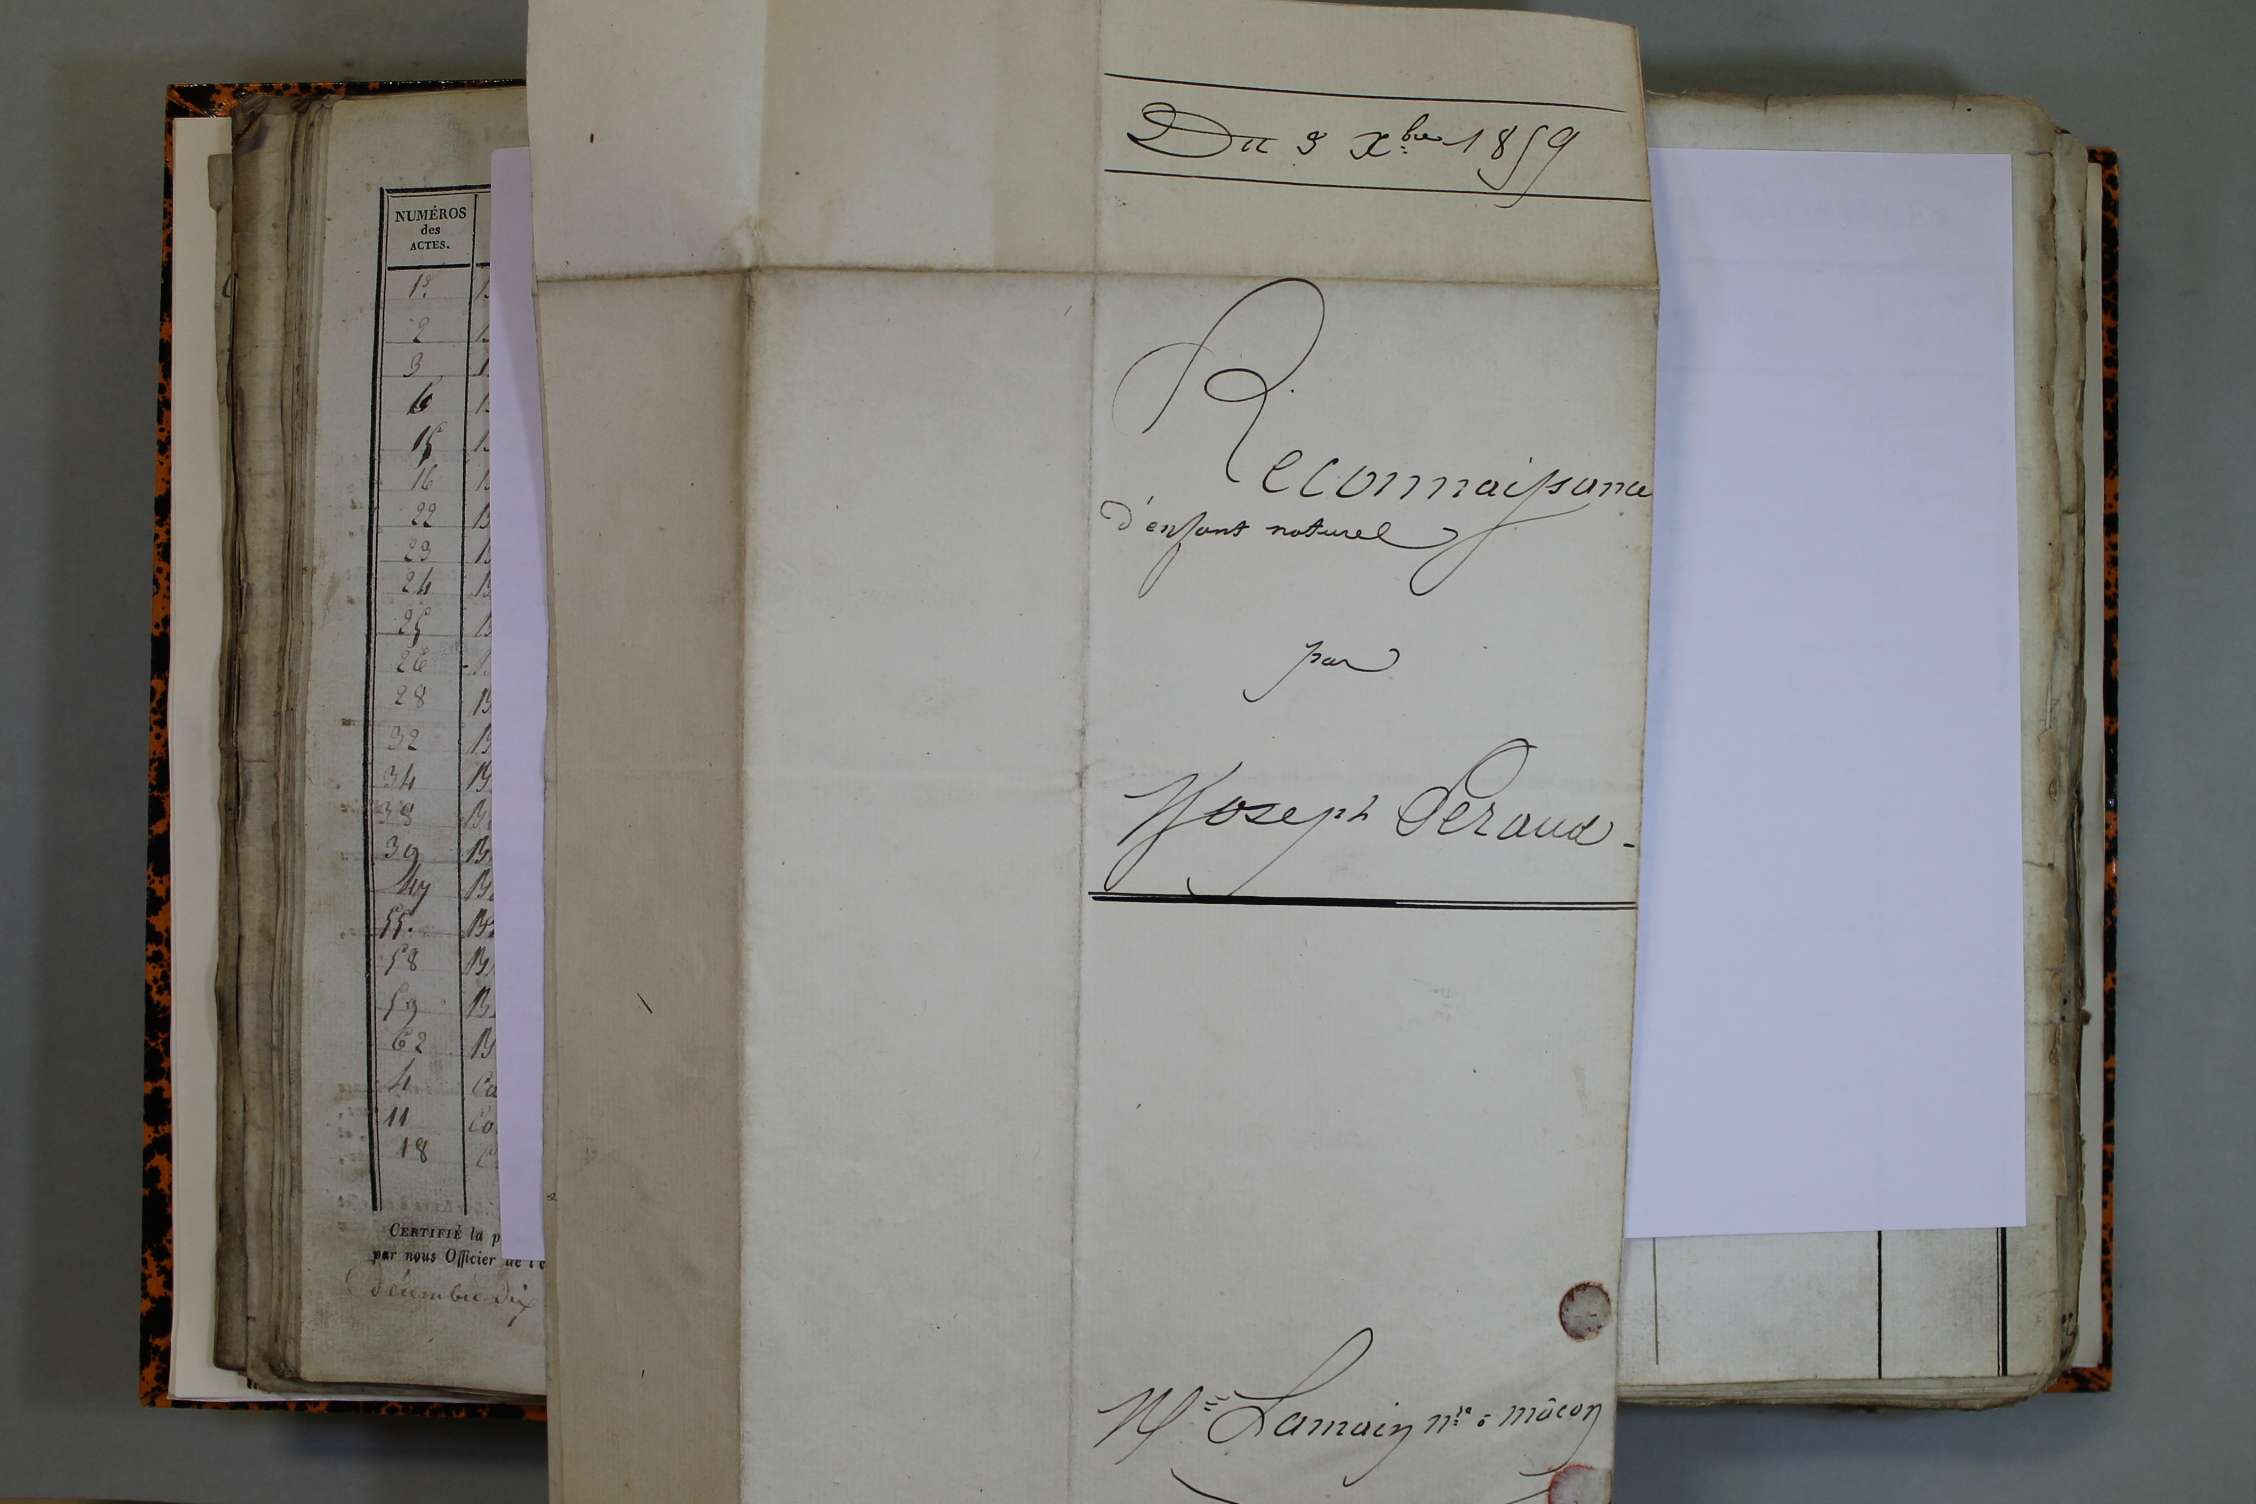 NUMÉROS
des
ACTES.
1er
2
3
6
15
16
22
23
24
25
26
28
32
34
38
39
55.
58
59
62
4
11
18
CERTIFIÉ la p
par nous Officier de l'é
décembre dix
Du 3 Xbre 1859
Reconnaissance
d'enfant naturel
par
Joseph Peraud
Me Lamain nre à mâcon